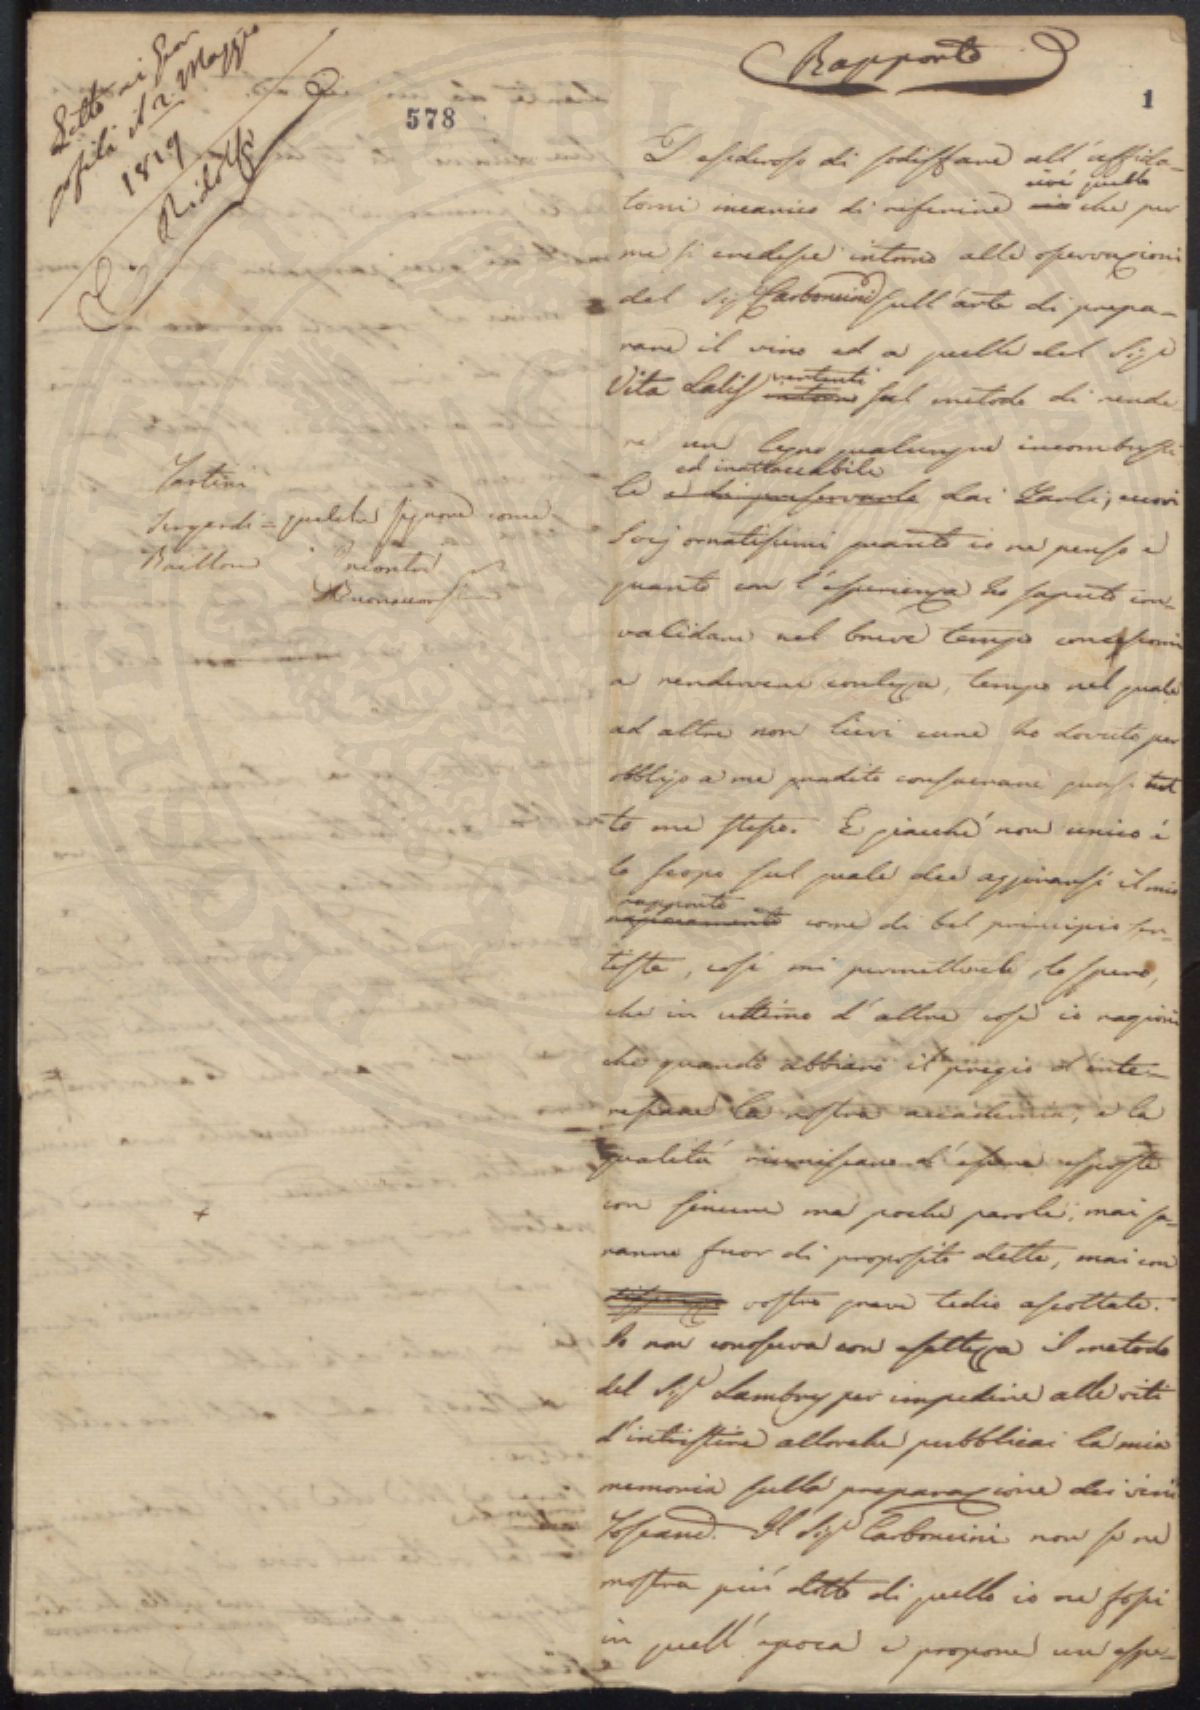 Letto nei Geor
gofili il 2 Maggio
1819
Ridolfi
578
Rapporto
1
Desideroso di sodisfare all'affida-
tomi incarico di referire cioè quello che per
me si credesse intorno alle osservazioni
del Sig.r Carboncini sull'arte di prepa-
rare il vino ed a quelle del Sig.r
Vita Latis vertenti sul metodo di rende
re un legno qualunque incombusti
ed inattaccabile
le e di preservarlo dai Tarli; eccovi
Socj ornatissimi quanto io ne penso e
quanto con l'esperienza ho saputo con-
validare nel breve tempo concessomi
a rendervene contezza, tempo nel quale
ad altre non lievi cure ho dovuto per
obbligo a me gradito consacrare quasi tut
to me stesso. E giacchè non unico è
lo scopo sul quale dee aggirarsi il mio
rapporto
ragionamento come di bel principio sen-
tiste, così mi permetterete, lo spero,
che in ultimo d'altre cose io ragioni
che quando abbiano il pregio d'inte-
ressare la nostra accademia, e la
qualità riuniscano d'essere esposte
con sincere ma poche parole, mai sa-
ranno fuor di proposito dette, mai con
vostro grave tedio ascoltate.
Io non conosceva con esattezza il metodo
del Sig.r Lambry per impedire alle viti
d'intristire allorchè pubblicai la mia
memoria sulla preparazione dei vini
Toscani. Il Sig.r Carboncini non se ne
mostra più dotto di quello io ne fossi
in quell'epoca e propone un espe-
Tartini
Sergardi = qualche signore come
Baillou
incontri